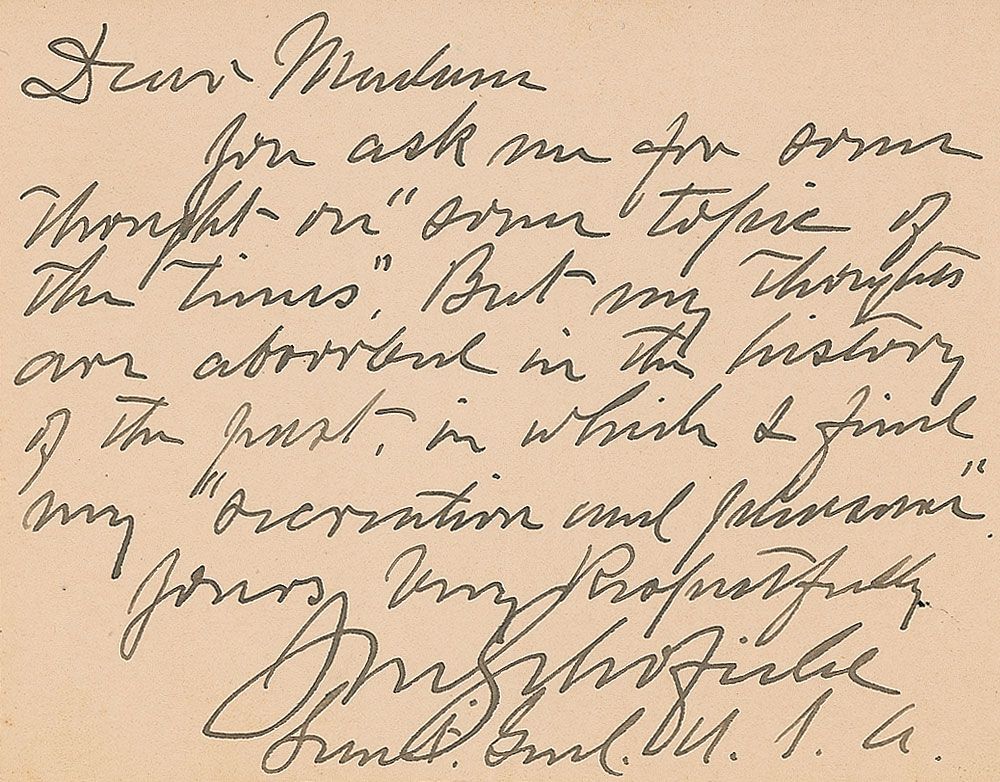 Dear Madam
You ask me for some
thought on "some topic of
the times". But my thoughts
are absorbed in the history
of the past, in which I find
my "recreation and pleasure".
Yours Very Respectfully
J M Schofield
Lieut. Genl. U. S. A.